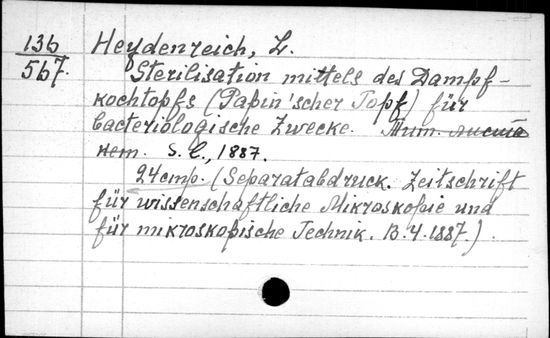 136 Heydenreich, L.
567. Sterilisation mittels des Dampf-
kochtopfs (Papin'scher Topf) für
bacteriologische Zwecke. Тит. листа
нет. S. l., 1887.
24 стр. (Separatabdruck. Zeitschrift
für wissenschaftliche Mikroskopie und
für mikroskopische Technik. B. 4. 1887.)